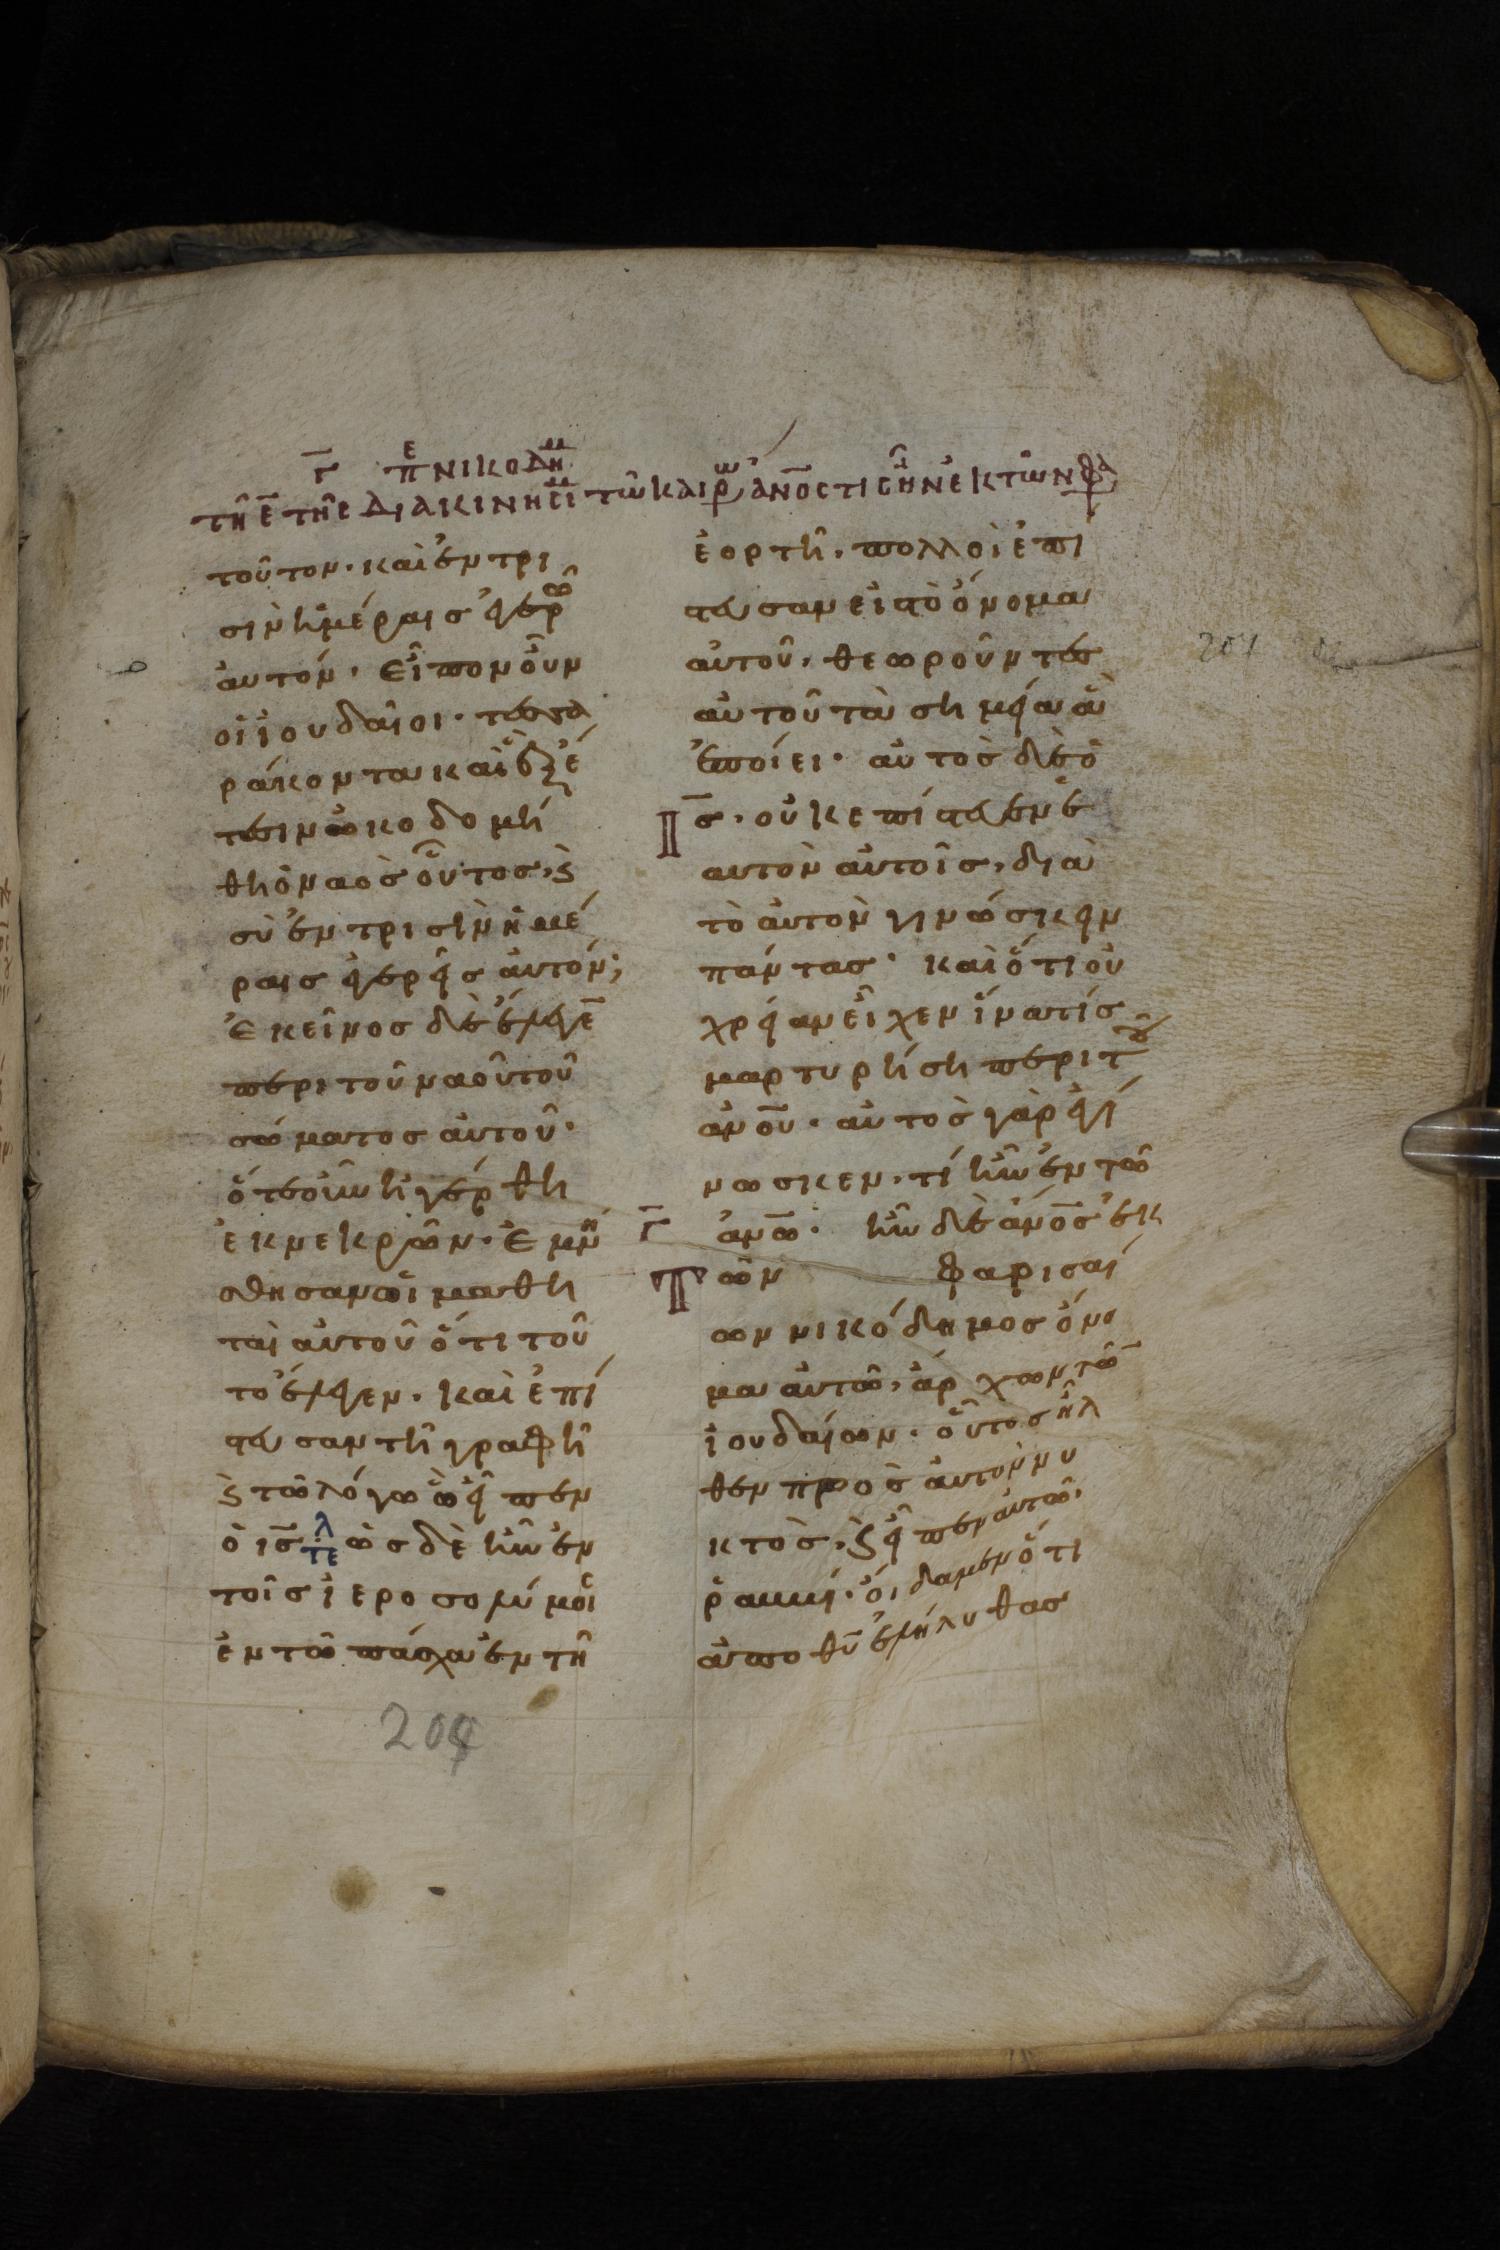 Γ̅ περ ΝΙΚΟΔΗΜ
τῆ ε̅ τῆς ΔΙΑΚΙΝΗΣΙΜ τῶ ΚΑΙΡῶ ἀΝΟ̅Σ ΤΙΣ ἦΝ ἐΚ Τῶν Φρ
τοῦτον· καὶ ἐν τρι
σὶν ἡμέραις ἐγερῶ
ἀυτόν· εἶπον οὖν
οἱ ἰουδαῖοι· τεσσα
ράκοντα καὶ ἓξ ἔ
τεσιν ὠκοδομή
θη ὁ ναὸς οὗτος, ϗ
σὺ ἐν τρισὶν ἡμέ
ραις ἐγερεῖς ἀυτόν;
Ἐκεῖνος δὲ ἔλεγε̅
περι τοῦ ναοῦ τοῦ
σώματος ἀυτοῦ·
ὅτε οὖν ἠγέρθη
ἐκ νεκρῶν· Ἐμνή
σθησαν οἱ μαθη
ταὶ ἀυτοῦ ὅτι τοῦ
το ἔλεγεν· καὶ ἐπί
στευσαν τῆ γραφῆ
ϗ τῶ λόγω ὧ εἶπεν
ὁ ισ̅· τελ ὡς δὲ ἦν ἐν
τοῖς ἱεροσολύμοι
ἐν τῶ πάσχα ἐν τῆ
204
ἑορτῆ· πολλοὶ ἐπί
στευσαν εἰς τὸ ὄνομα
αὐτοῦ· θεωροῦντες
αὐτοῦ τὰ σημεῖα ἃ
ἐποίει· αὐτος δὲ ὁ
Ι̅ς· οὐκ επίστευεν ἑ
αυτὸν αὐτοῖς, διὰ
τὸ αὐτὸν γινώσκειν
πάντας· καὶ ὅτι οὐ
χρείαν εἶχεν ἵνα τίς
μαρτυρήση περι τοῦ
ἀνου̅· αὐτὸς γὰρ ἐγί
νωσκεν· τί ἦν ἐν τῶ
Γ̅ ἀνω̅· ἦν δὲ ἀνο̅ς ἐκ
Τῶν φαρισαί
ων νικόδημος ὄνο
μα ἀυτῶ, ἄρχων τῶ̅
ἰουδαίων· οὗτος ἦλ
θεν πρὸς ἀυτὸν νυ
κτὸς, ϗ εἶπεν ἀυτῶ·
ῥαββί· οἴδαμεν ὅτι
ἀπο θυ̅ ἐλήλυθας
204